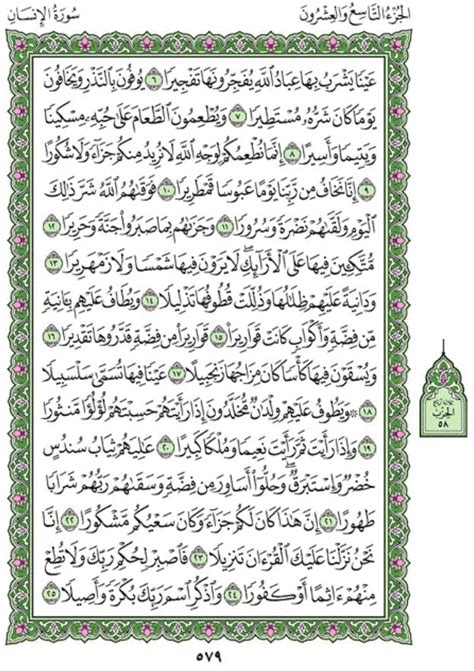 الجُزْءُ التَّاسِعُ وَالعِشْرُونَ
سُورَةُ الإِنسَانِ
عَيْنًا يَشْرَبُ بِهَا عِبَادُ ٱللَّهِ يُفَجِّرُونَهَا تَفْجِيرًا ٦ يُوفُونَ بِٱلنَّذْرِ وَيَخَافُونَ
يَوْمًا كَانَ شَرُّهُۥ مُسْتَطِيرًا ٧ وَيُطْعِمُونَ ٱلطَّعَامَ عَلَىٰ حُبِّهِۦ مِسْكِينًا
وَيَتِيمًا وَأَسِيرًا ٨ إِنَّمَا نُطْعِمُكُمْ لِوَجْهِ ٱللَّهِ لَا نُرِيدُ مِنكُمْ جَزَآءً وَلَا شُكُورًا
٩ إِنَّا نَخَافُ مِن رَّبِّنَا يَوْمًا عَبُوسًا قَمْطَرِيرًا ١٠ فَوَقَىٰهُمُ ٱللَّهُ شَرَّ ذَٰلِكَ
ٱلْيَوْمِ وَلَقَّىٰهُمْ نَضْرَةً وَسُرُورًا ١١ وَجَزَىٰهُم بِمَا صَبَرُوا۟ جَنَّةً وَحَرِيرًا ١٢
مُّتَّكِـِٔينَ فِيهَا عَلَى ٱلْأَرَآئِكِ ۖ لَا يَرَوْنَ فِيهَا شَمْسًا وَلَا زَمْهَرِيرًا ١٣
وَدَانِيَةً عَلَيْهِمْ ظِلَٰلُهَا وَذُلِّلَتْ قُطُوفُهَا تَذْلِيلًا ١٤ وَيُطَافُ عَلَيْهِم بِـَٔانِيَةٍ
مِّن فِضَّةٍ وَأَكْوَابٍ كَانَتْ قَوَارِيرَا۠ ١٥ قَوَارِيرَا۟ مِن فِضَّةٍ قَدَّرُوهَا تَقْدِيرًا ١٦
وَيُسْقَوْنَ فِيهَا كَأْسًا كَانَ مِزَاجُهَا زَنجَبِيلًا ١٧ عَيْنًا فِيهَا تُسَمَّىٰ سَلْسَبِيلًا
١٨ ۞ وَيَطُوفُ عَلَيْهِمْ وِلْدَٰنٌ مُّخَلَّدُونَ إِذَا رَأَيْتَهُمْ حَسِبْتَهُمْ لُؤْلُؤًا مَّنثُورًا
١٩ وَإِذَا رَأَيْتَ ثَمَّ رَأَيْتَ نَعِيمًا وَمُلْكًا كَبِيرًا ٢٠ عَٰلِيَهُمْ ثِيَابُ سُندُسٍ
خُضْرٌ وَإِسْتَبْرَقٌ ۖ وَحُلُّوٓا۟ أَسَاوِرَ مِن فِضَّةٍ وَسَقَىٰهُمْ رَبُّهُمْ شَرَابًا
طَهُورًا ٢١ إِنَّ هَٰذَا كَانَ لَكُمْ جَزَآءً وَكَانَ سَعْيُكُم مَّشْكُورًا ٢٢ إِنَّا
نَحْنُ نَزَّلْنَا عَلَيْكَ ٱلْقُرْءَانَ تَنزِيلًا ٢٣ فَٱصْبِرْ لِحُكْمِ رَبِّكَ وَلَا تُطِعْ
مِنْهُمْ ءَاثِمًا أَوْ كَفُورًا ٢٤ وَٱذْكُرِ ٱسْمَ رَبِّكَ بُكْرَةً وَأَصِيلًا ٢٥
الحِزْب
٥٨
٥٧٩